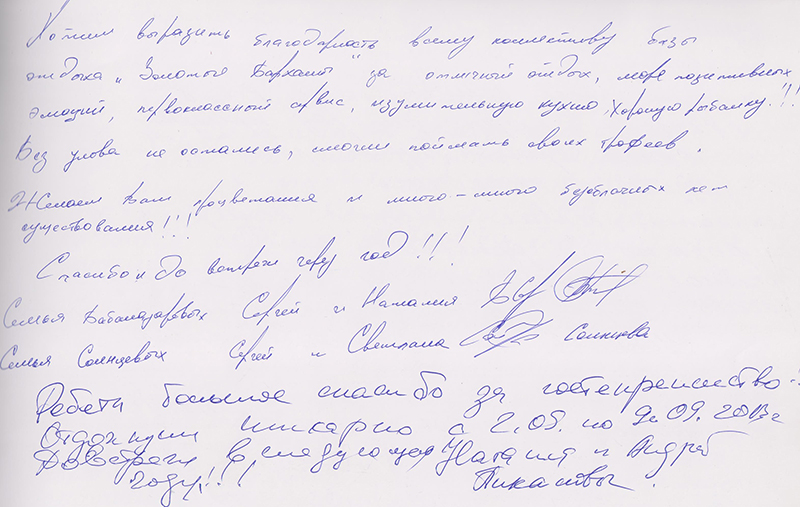 Хотим выразить благодарность всему коллективу базы
отдыха "Золотые Барханы" за отличный отдых, море позитивных
эмоций, первоклассный сервис, изумительную кухню, хорошую рыбалку!!!
Без улова не остались, смогли поймать своих трофеев.
Желаем Вам процветания и много-много безоблачных лет
существования!!!
Спасибо и до встречи через год!!!
Семья Сергей и Наталия
Семья Солнцевых Сергей и Светлана Солнцева
Ребята большое спасибо за гостеприимство!
Отдохнули шикарно с 2.09. по 9.09. 2013г
До встречи в следующем Наталия и Андрей
году!!!